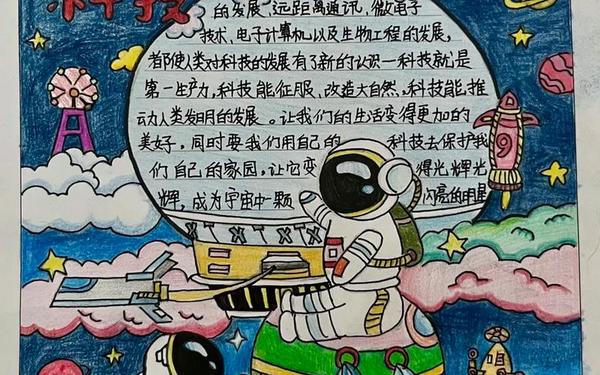 科技
的发展、远距离通讯、微电子
技术、电子计算机以及生物工程的发展,
都使人类对科技的发展有了新的认识—科技就是
第一生产力,科技能征服、改造大自然,科技能推
动人类发明的发展。让我们的生活变得更加的
美好,同时要我们用自己的 科技去保护我
们自己的家园,让它变 得光辉光
辉,成为宇宙中一颗 闪亮的明星
9